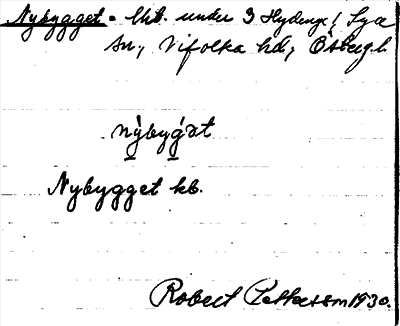 Nybygget - Uts. under 3 Hydinge, Sya
sn, Vifolka hd, Östergl.
nybygat
Nybygget kb.
Robert Pettersson 1930.